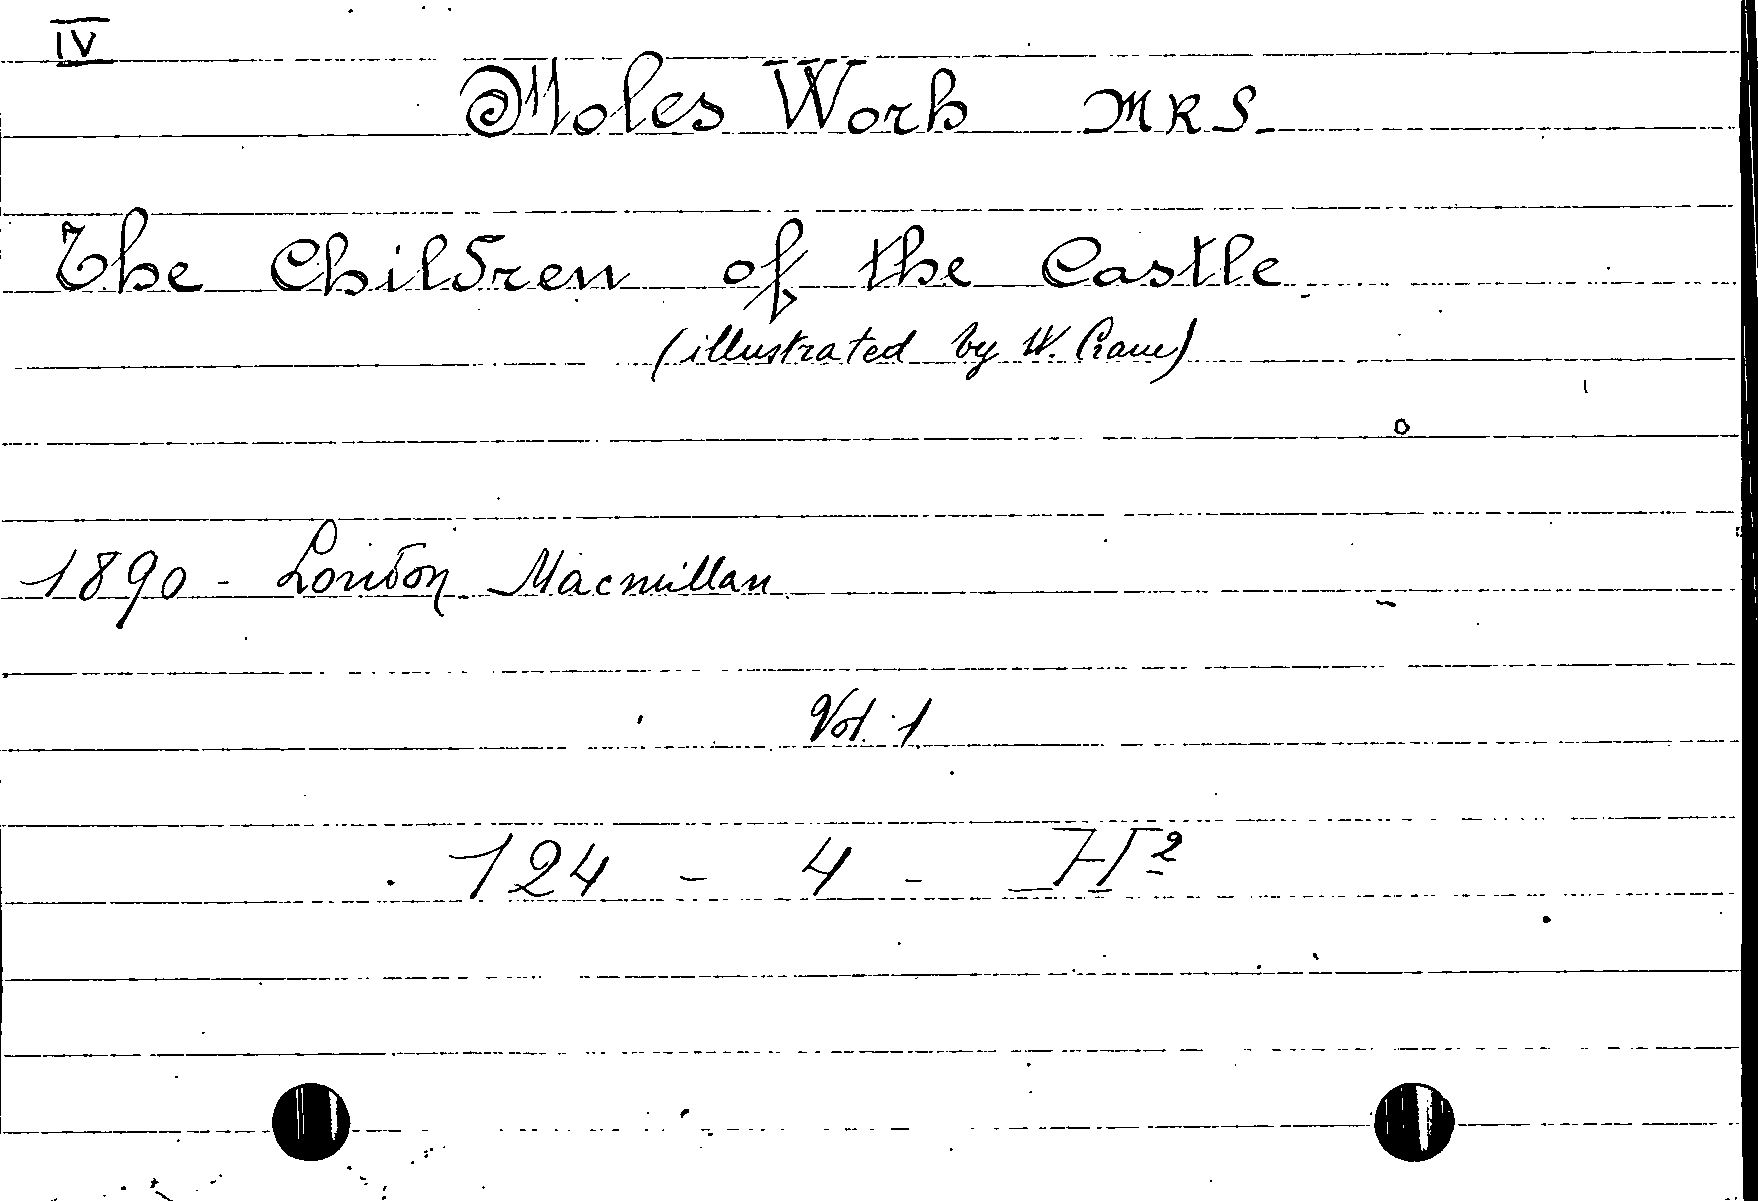 IV
Moles Work MRS
The Children of the Castle
(illustrated by W. Crane)
1890 - London Macmillan
Vol. 1
124 - 4 -